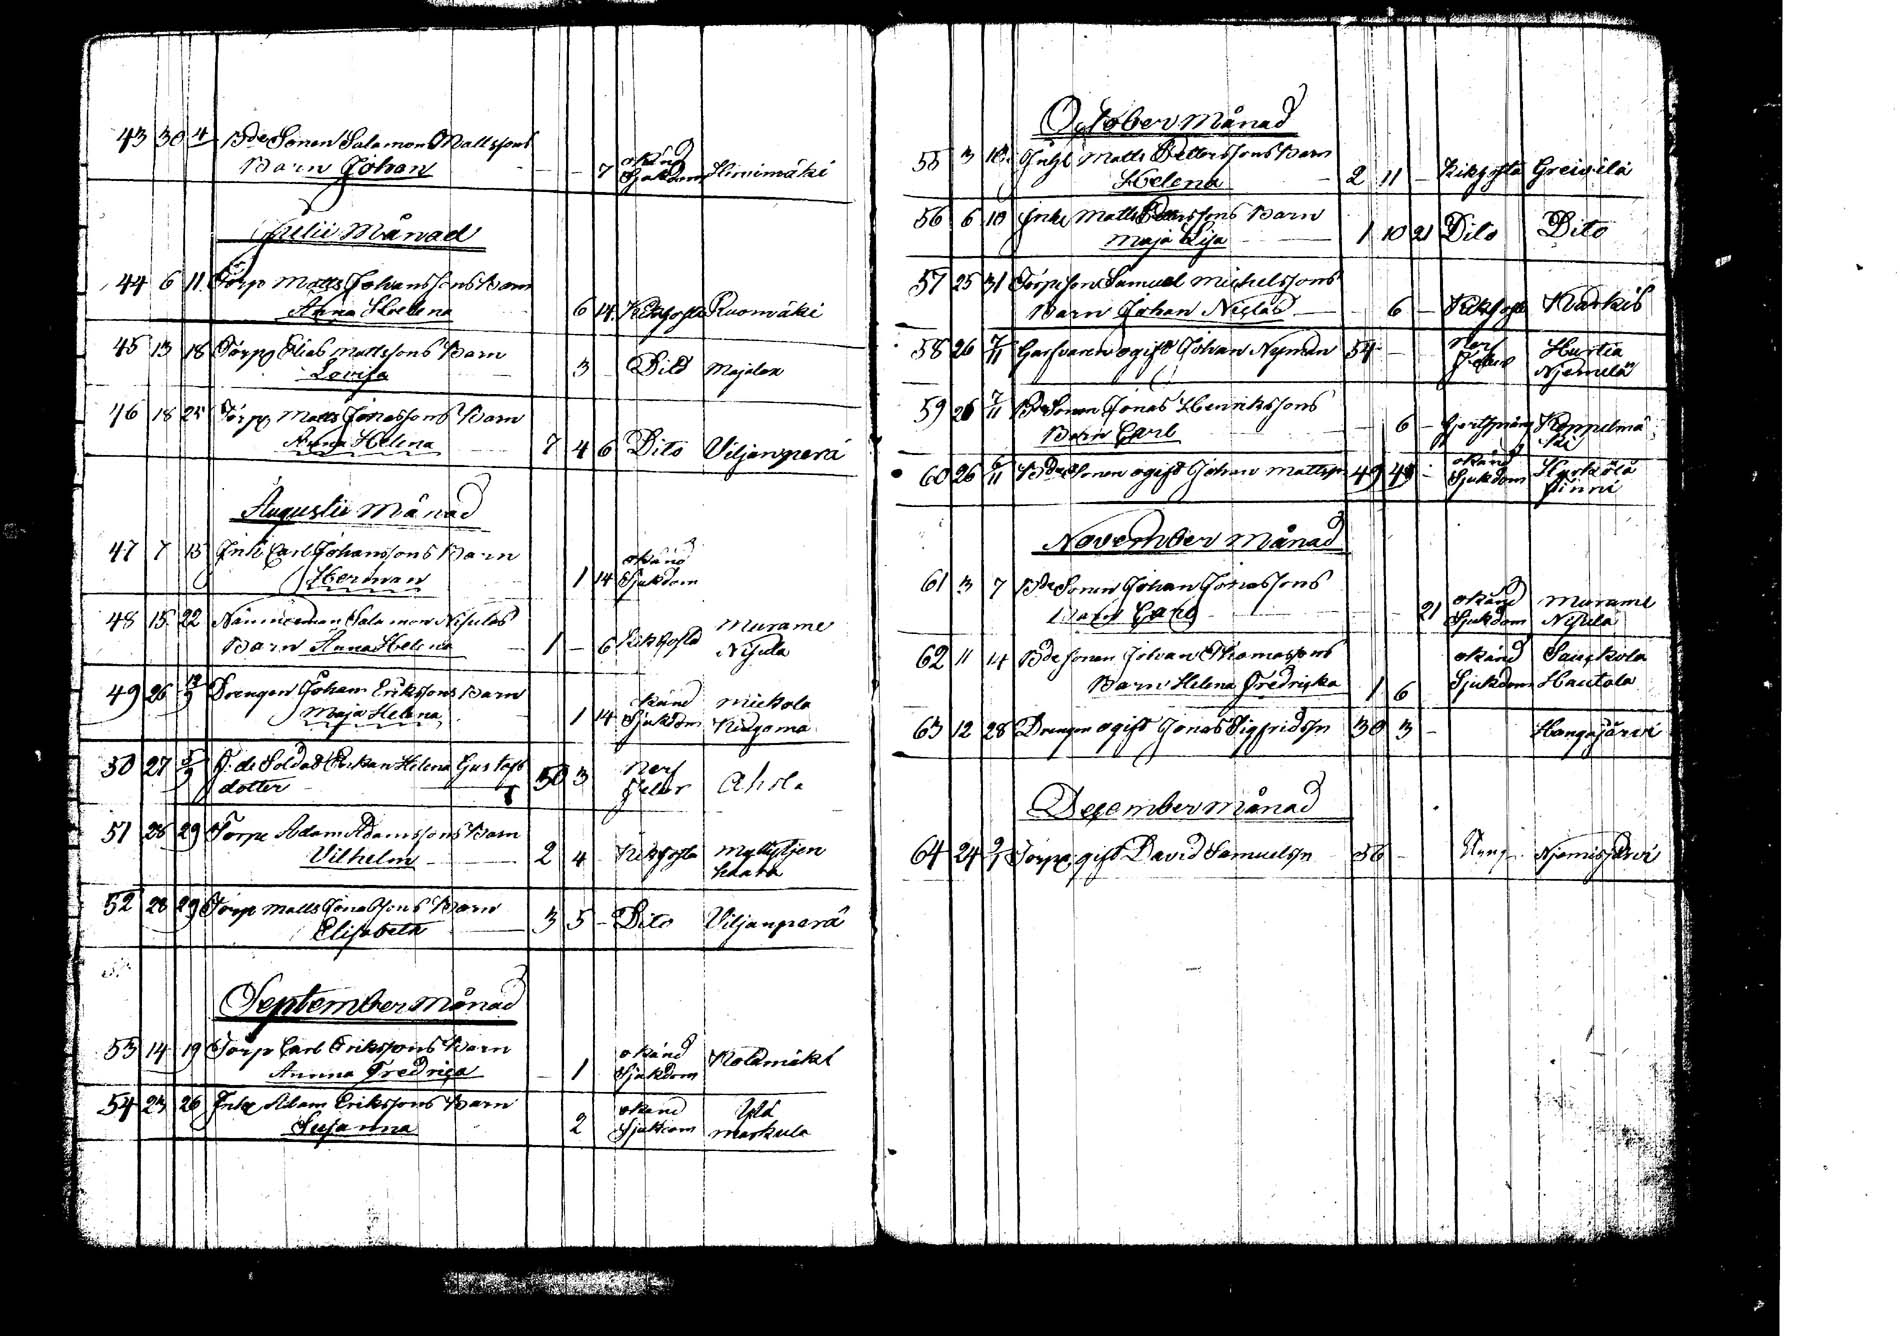 43 30 4 Bde Sonen Salamon Mattssons okänd
Barn Johan - - 7 Sjukdom Hinimäki
Julii Månad
44 6 11 Torp Matts Johanssons Barn
Anna Helena 6 14 Kikhosta Ruomäki
45 13 18 Torp Elias Mattssons Barn
Lovisa 3 - Dito Majalax
46 18 25 Torp Matts Jonassons Barn
Anna Helena 7 4 6 Dito Viljanperä
Augustii Månad
47 7 13 Inh Carl Johanssons Barn okänd
Herman 1 14 Sjukdom
48 15 22 Nämndeman Salamon Nisulas Murame
Barn Anna Helena 1 - 6 Kikhosta Nisula
49 26 Drengen Johan Erikssons Barn okänd Mickola
Maja Helena 1 14 Sjukdom
50 27 5/9 Enkan Helena Gustafs 50 3 Nerf
dotter Feber Ahola
51 26 29 Torp Adam Adamssons Barn
Vilhelm 2 4 - Kikhosta
52 28 29 Torp Matts Jonassons Barn
Elisabeta 3 5 - Dito Viljanperä
September Månad
53 14 19 Torp Carl Erikssons Barn okänd
Annna Fredrica - 1 Sjukdom Kotamäki
54 23 26 Inh Adam Erikssons Barn okänd Ylä
Susanna 2 Sjukdom Markula
October Månad
55 3 10 Inh Matts Pettersons Barn
Helena 2 11 - Kikhosta Greivilä
56 6 10 Inh Matts Pettersons Barn
Maja Lisa 1 10 21 Dito Dito
57 25 31 Torpe son Samuel Michelssons
Barn Johan Niclas - 6 - Kikhosta Markus
58 26 7/11 ogift Johan Nyman 54 - Nerf Hurtia
Feber Njemelä
59 26 7/11 Bde Sonen Jonas Henrikssons
Barn Carl - 6 - Koppelmä
ki
60 26 6/11 Bde Sonen ogift Johan Mattsn 49 49 - okänd
Sjukdom Finni
November Månad
61 3 7 Bde Sonen Johan Jonassons okänd Murame
Barn Carl 21 Sjukdom Nisula
62 11 14 Bde Sonen Johan Thomassons okänd Saukola
Barn Helena Fredricka 1 6 Sjukdom Hautala
63 12 28 Drengen ogift Jonas Sigfridsn 30 3 - Hangasjärvi
December Månad
64 24 9/1 Torp, gift David Samuelsn 56 - Njemisjärvi